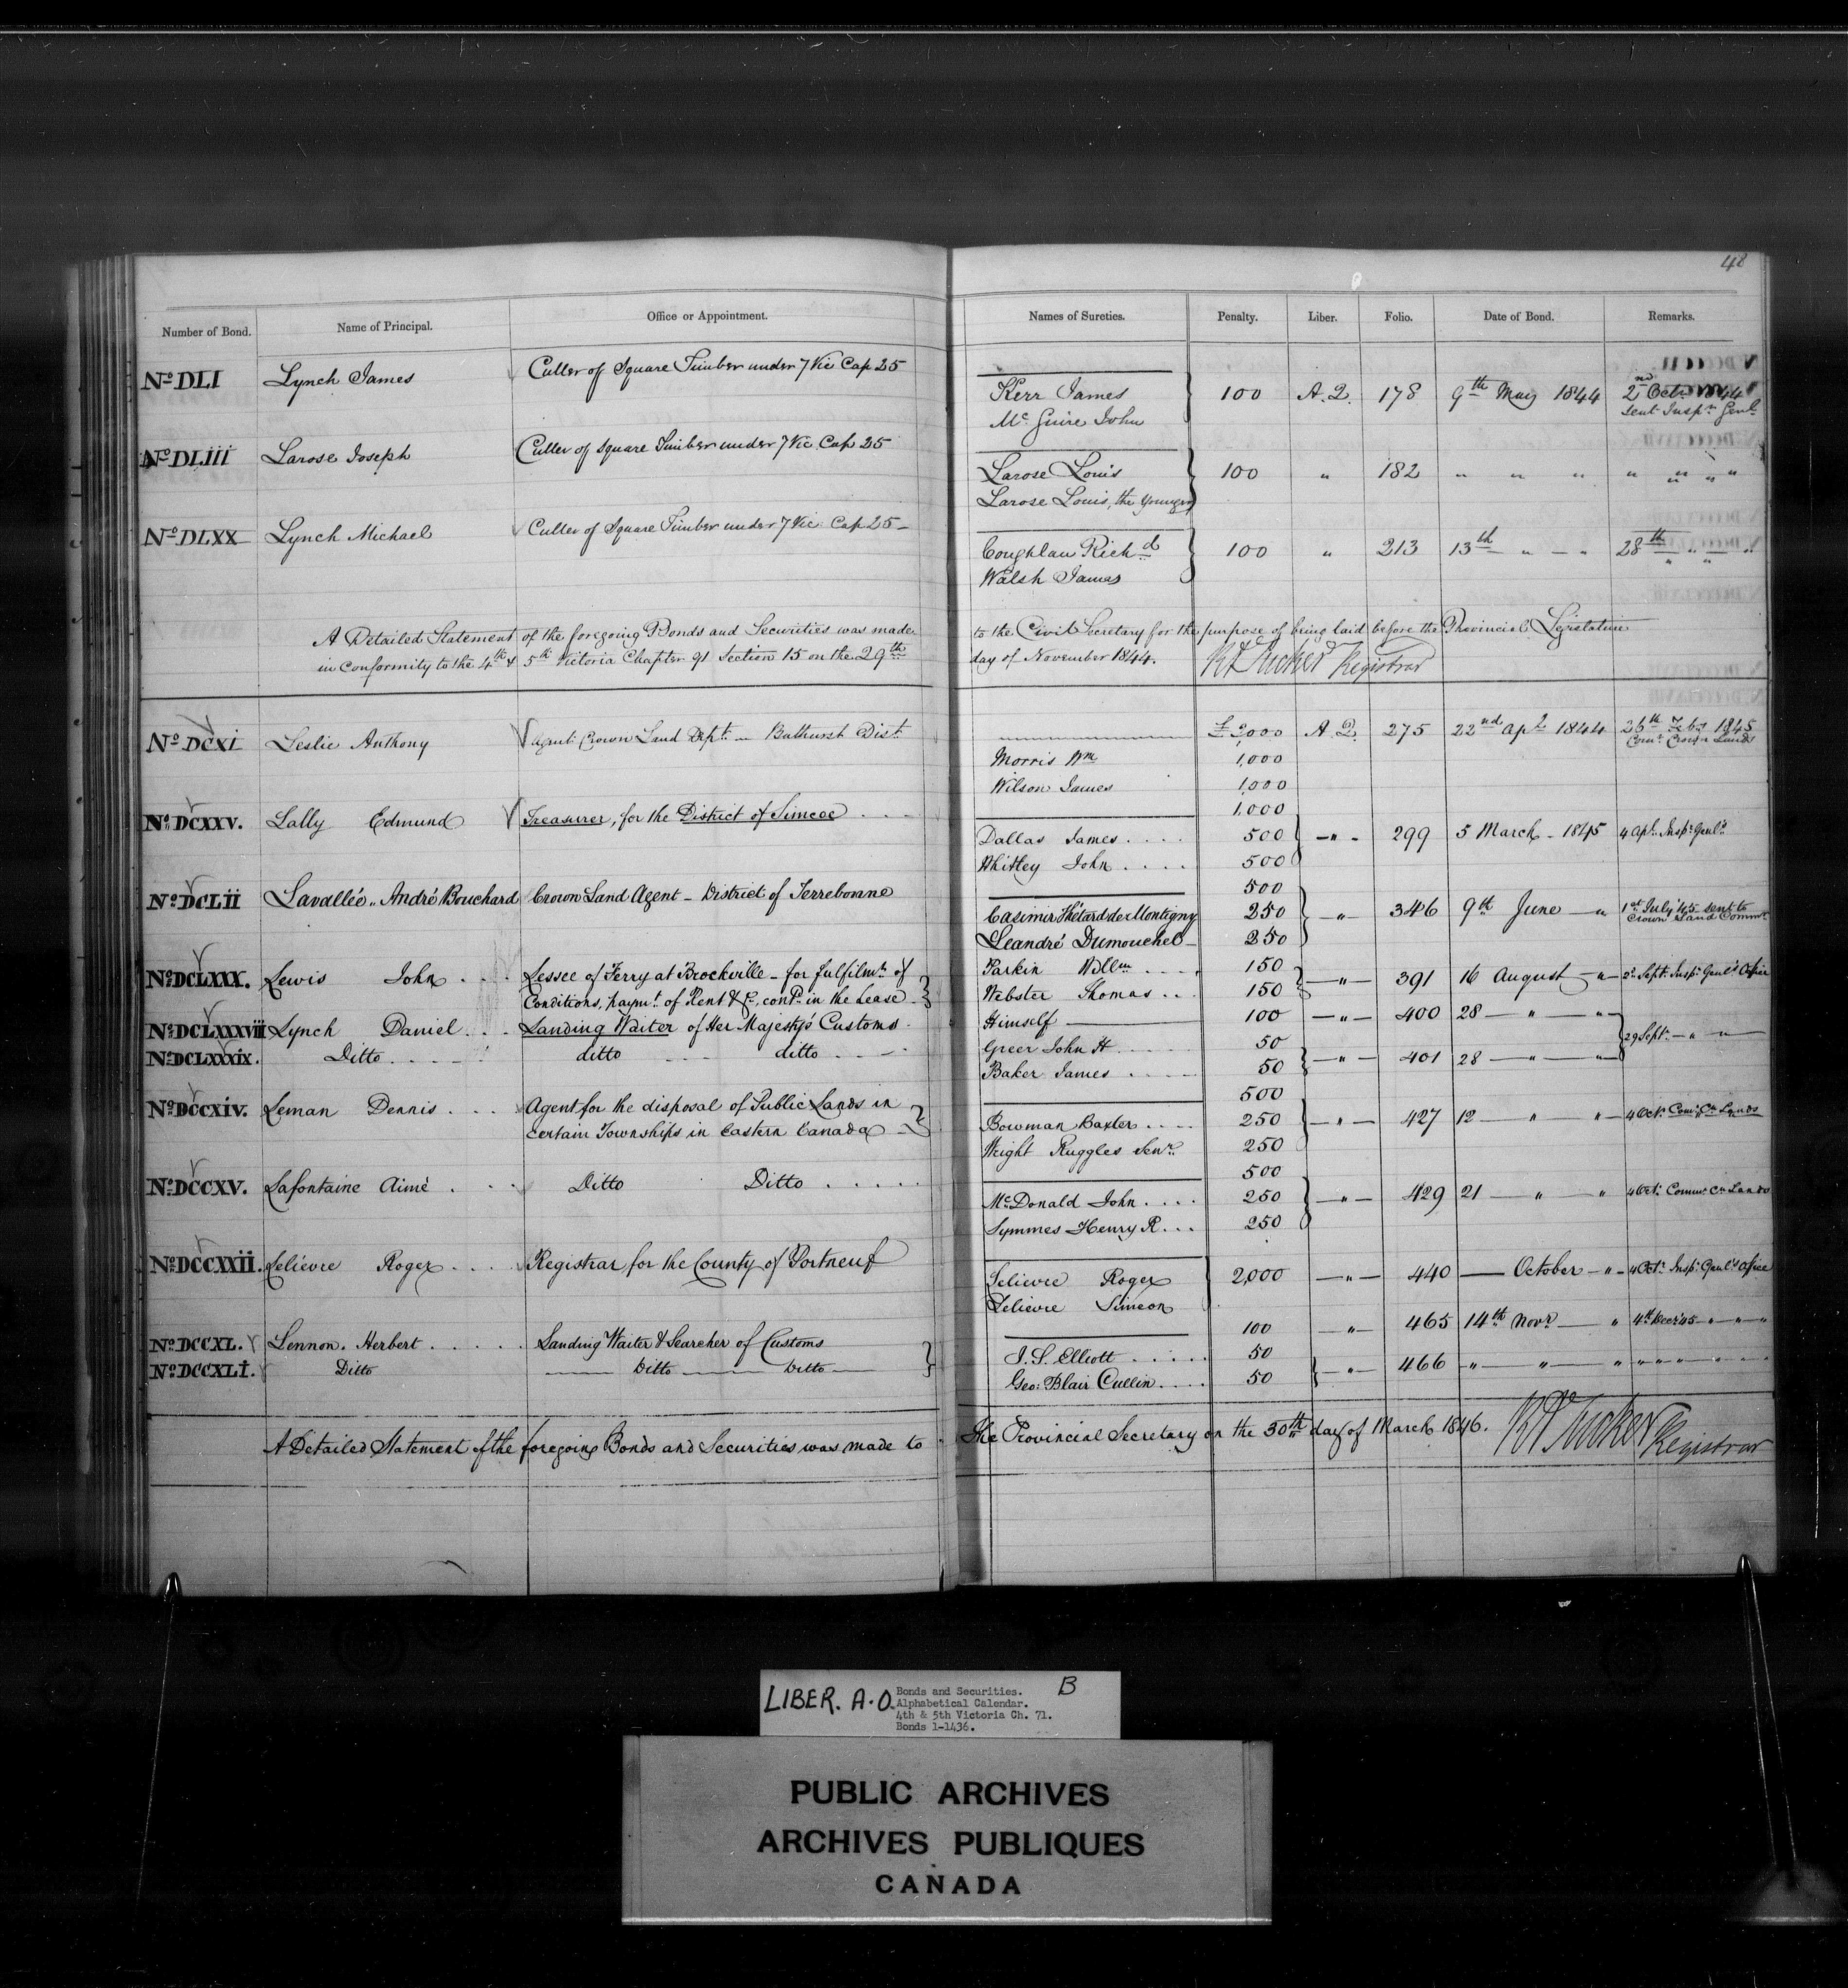 48
Number of Bond. Name of Principal. Office or Appointment. Names of Sureties. Penalty. Liber. Folio. Date of Bond. Remarks.
No. DLI Lynch James Culler of Square Timber under 7 Vic Cap 25
Kerr James 100 A.Q. 178 9th May 1844 2nd Octr 1844
Mc Guire John sent Inspr Genl
No. DLIII Larose Joseph Culler of Square Timber under 7 Vic Cap 25
Larose Louis 100 " 182 " " " " " " "
Larose Louis, the Younger
No. DLXX Lynch Michael Culler of Square Timber under 7 Vic Cap 25 –
Coughlan Richd 100 " 213 13th " – " 28th " – "
Walsh James
A Detailed Statement of the foregoing Bonds and Securities was made to the Civil Secretary for the purpose of being laid before the Provincial Legislature
in conformity to the 4th & 5th Victoria Chapter 91 Section 15 on the 29th day of November 1844. RA Tucker Registrar
No. DCXI Leslie Anthony Agent Crown Land Dept – Bathurst Dist. £2,000 A.Q. 275 22nd Apl 1844 26th Feby 1845
Morris Wm 1,000 Comr Crown Lands
Wilson James 1,000
No. DCXXV. Lally Edmund Treasurer, for the District of Simcoe 1,000
Dallas James 500 – " – 299 5 March – 1845 4 Apl. Inspr Genl's
Whitley John 500
No. DCLII Lavallée " André Bouchard Crown Land Agent – District of Terrebonne 500
Casimir Thétard de Montigny 250 – " – 346 9th June – " 1st July '45 sent to
Leandré Dumouchel – 250 Crown Land Commr
No. DCLXXX. Lewis John Lessee of Ferry at Brockville – for fulfilmt. of Parkin Willm 150
Conditions, paymt. of Rent &c, contd. in the Lease – Webster Thomas 150 – " – 391 16 August – " – 2d Sept. Inspr Genl's Office
No. DCLXXXVIII Lynch Daniel Landing Waiter of Her Majesty's Customs Himself 100 – " – 400 28 – " – " –
No. DCLXXXIX. Ditto ditto ditto Greer John H 50 29 Sept. – " – " –
Baker James 50 – " – 401 28 – " – " –
No. DCCXIV. Leman Dennis Agent for the disposal of Public Lands in 500
certain Townships in Eastern Canada Bowman Baxter 250 – " – 427 12 – " – " – 4 Oct. Comr Cn Lands
Wright Ruggles Senr. 250
No. DCCXV. Lafontaine Aimé Ditto Ditto 500
McDonald John 250 – " – 429 21 – " – " 4 Oct. Commr Cn Lands
Symmes Henry R 250
No. DCCXXII. Lelievre Roger Registrar for the County of Portneuf
Lelievre Roger 2,000 – " – 440 – October – " – 4 Oct. Inspr Genl's Office
Lelievre Simeon
No. DCCXL. Lennon. Herbert Landing Waiter & Searcher of Customs 100 – " – 465 14th Novr – " 4th Decr '45 " " "
No. DCCXLI. Ditto Ditto Ditto
J. S. Elliott 50
Geo: Blair Cullin 50 – " – 466 " – " – " " " " " " "
A Detailed Statement of the foregoing Bonds and Securities was made to the Provincial Secretary on the 30th day of March 1846. RA Tucker Registrar
LIBER. A.O. Bonds and Securities. B
Alphabetical Calendar.
4th & 5th Victoria Ch. 71.
Bonds 1-1436.
PUBLIC ARCHIVES
ARCHIVES PUBLIQUES
CANADA